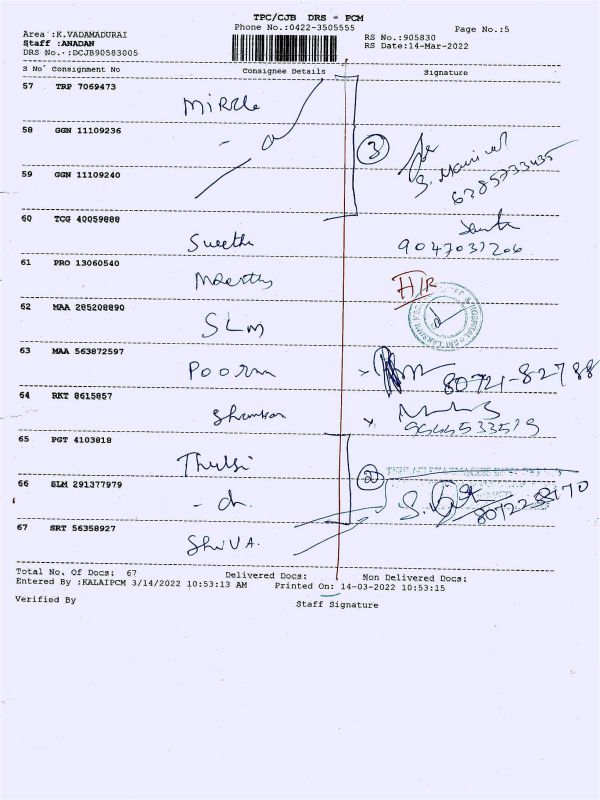 TPC/CJB DRS - PCM
Area :K.VADAMADURAI
Phone No.:0422-3505555
Page No.:5
Staff :ANADAN
RS No.:905830
DRS No.:DCJB90583005
RS Date:14-Mar-2022
S No Consignment No
Consignee Details
Signature
57 TRP 7069473
Miracle
58 GGN 11109236
3
59 GGN 11109240
6385733435
60 TCG 40059888
Swetha
9047037206
61 PRO 13060540
Moorthy
H/R
62 MAA 285208890
SLM
63 MAA 563872597
Poorna
80721-82788
64 RKT 8615857
Shankar
65 PGT 4103818
Thulsi
2
66 SLM 291377979
67 SRT 56358927
SHIVA.
Total No. Of Docs: 67
Delivered Docs:
Non Delivered Docs:
Entered By :KALAIPCM 3/14/2022 10:53:13 AM
Printed On: 14-03-2022 10:53:15
Verified By
Staff Signature